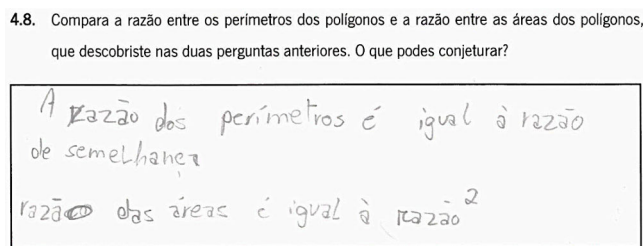 4.8. Compara a razão entre os perímetros dos polígonos e a razão entre as áreas dos polígonos,
que descobriste nas duas perguntas anteriores. O que podes conjeturar?
A razão dos perímetros é igual à razão
de semelhança
razão das áreas é igual à razão²